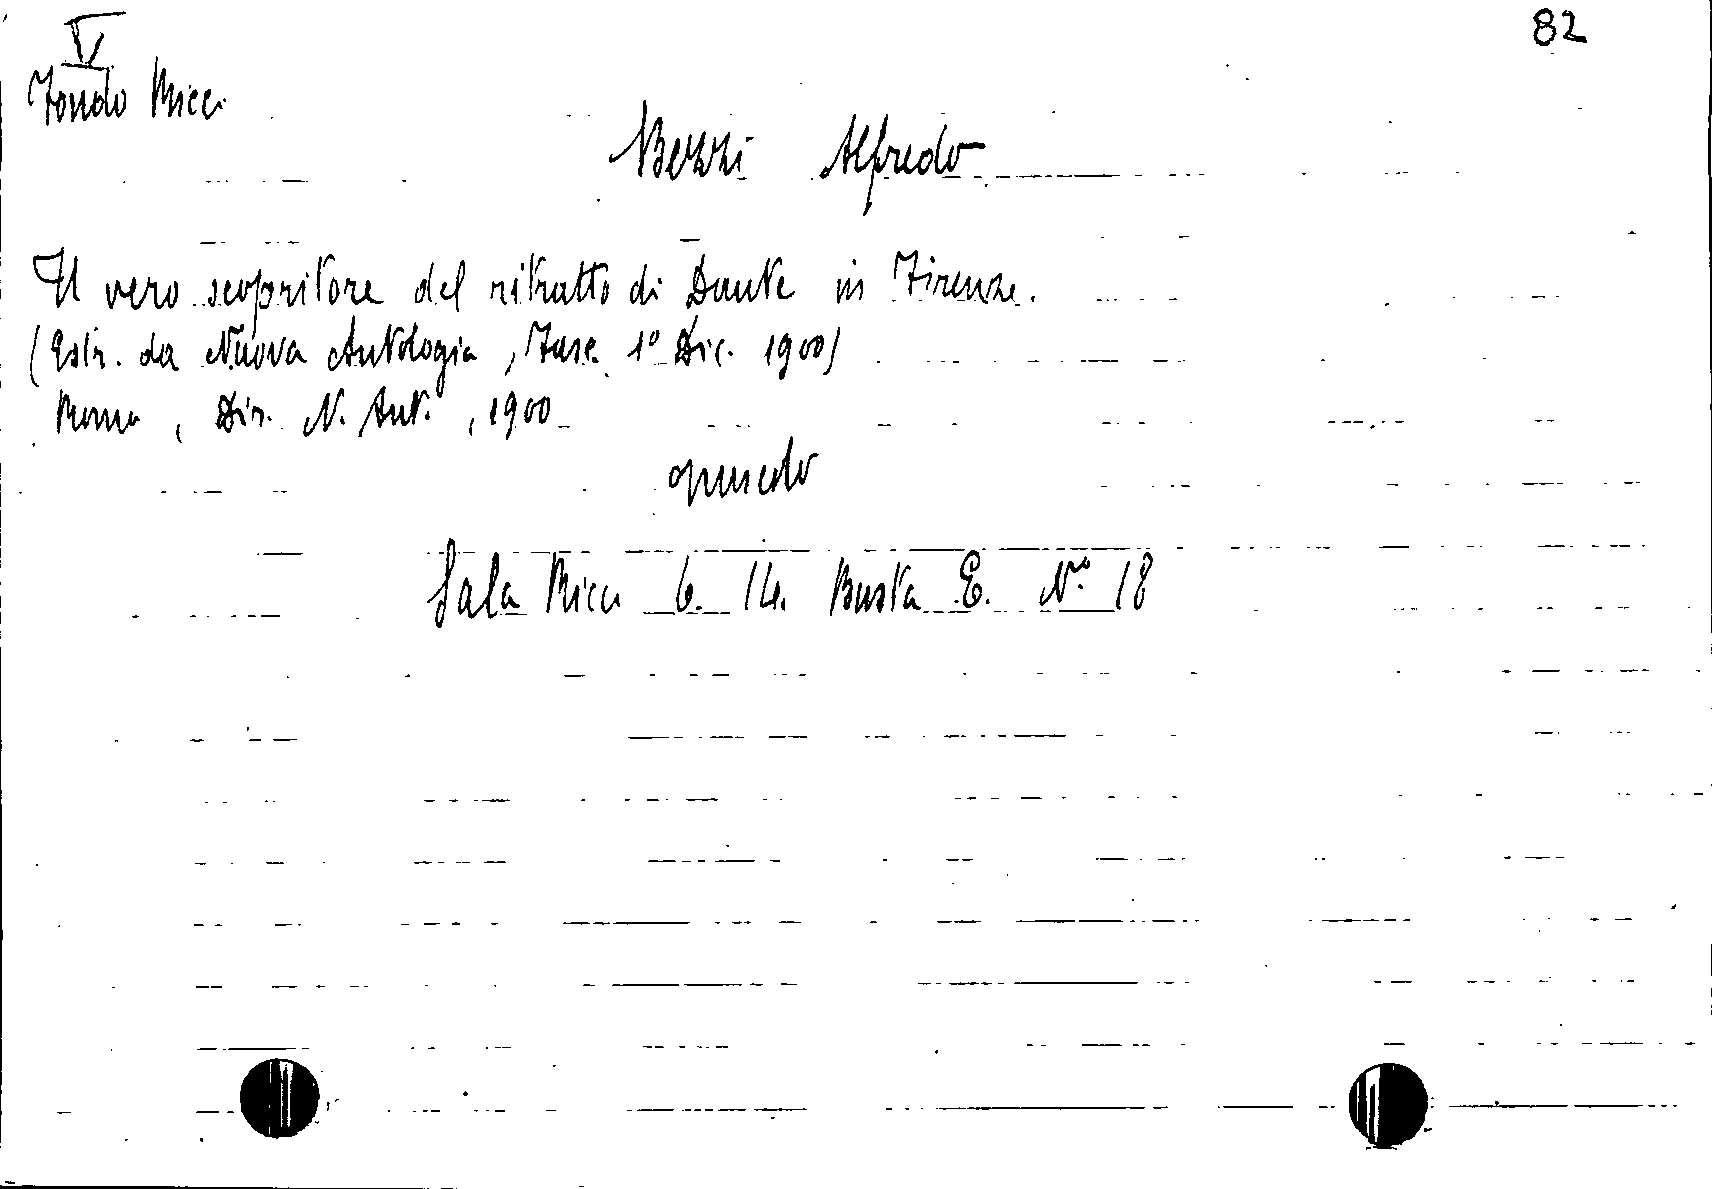 V
82
Fondo Ricci
Bezzi Alfredo
Il vero scopritore del ritratto di Dante in Firenze.
(Estr. da Nuova Antologia, Fasc. 1º Dic. 1900)
Roma, Dir. N. Ant., 1900
opuscolo
Sala Ricci 6. 14. Busta E. Nº 18